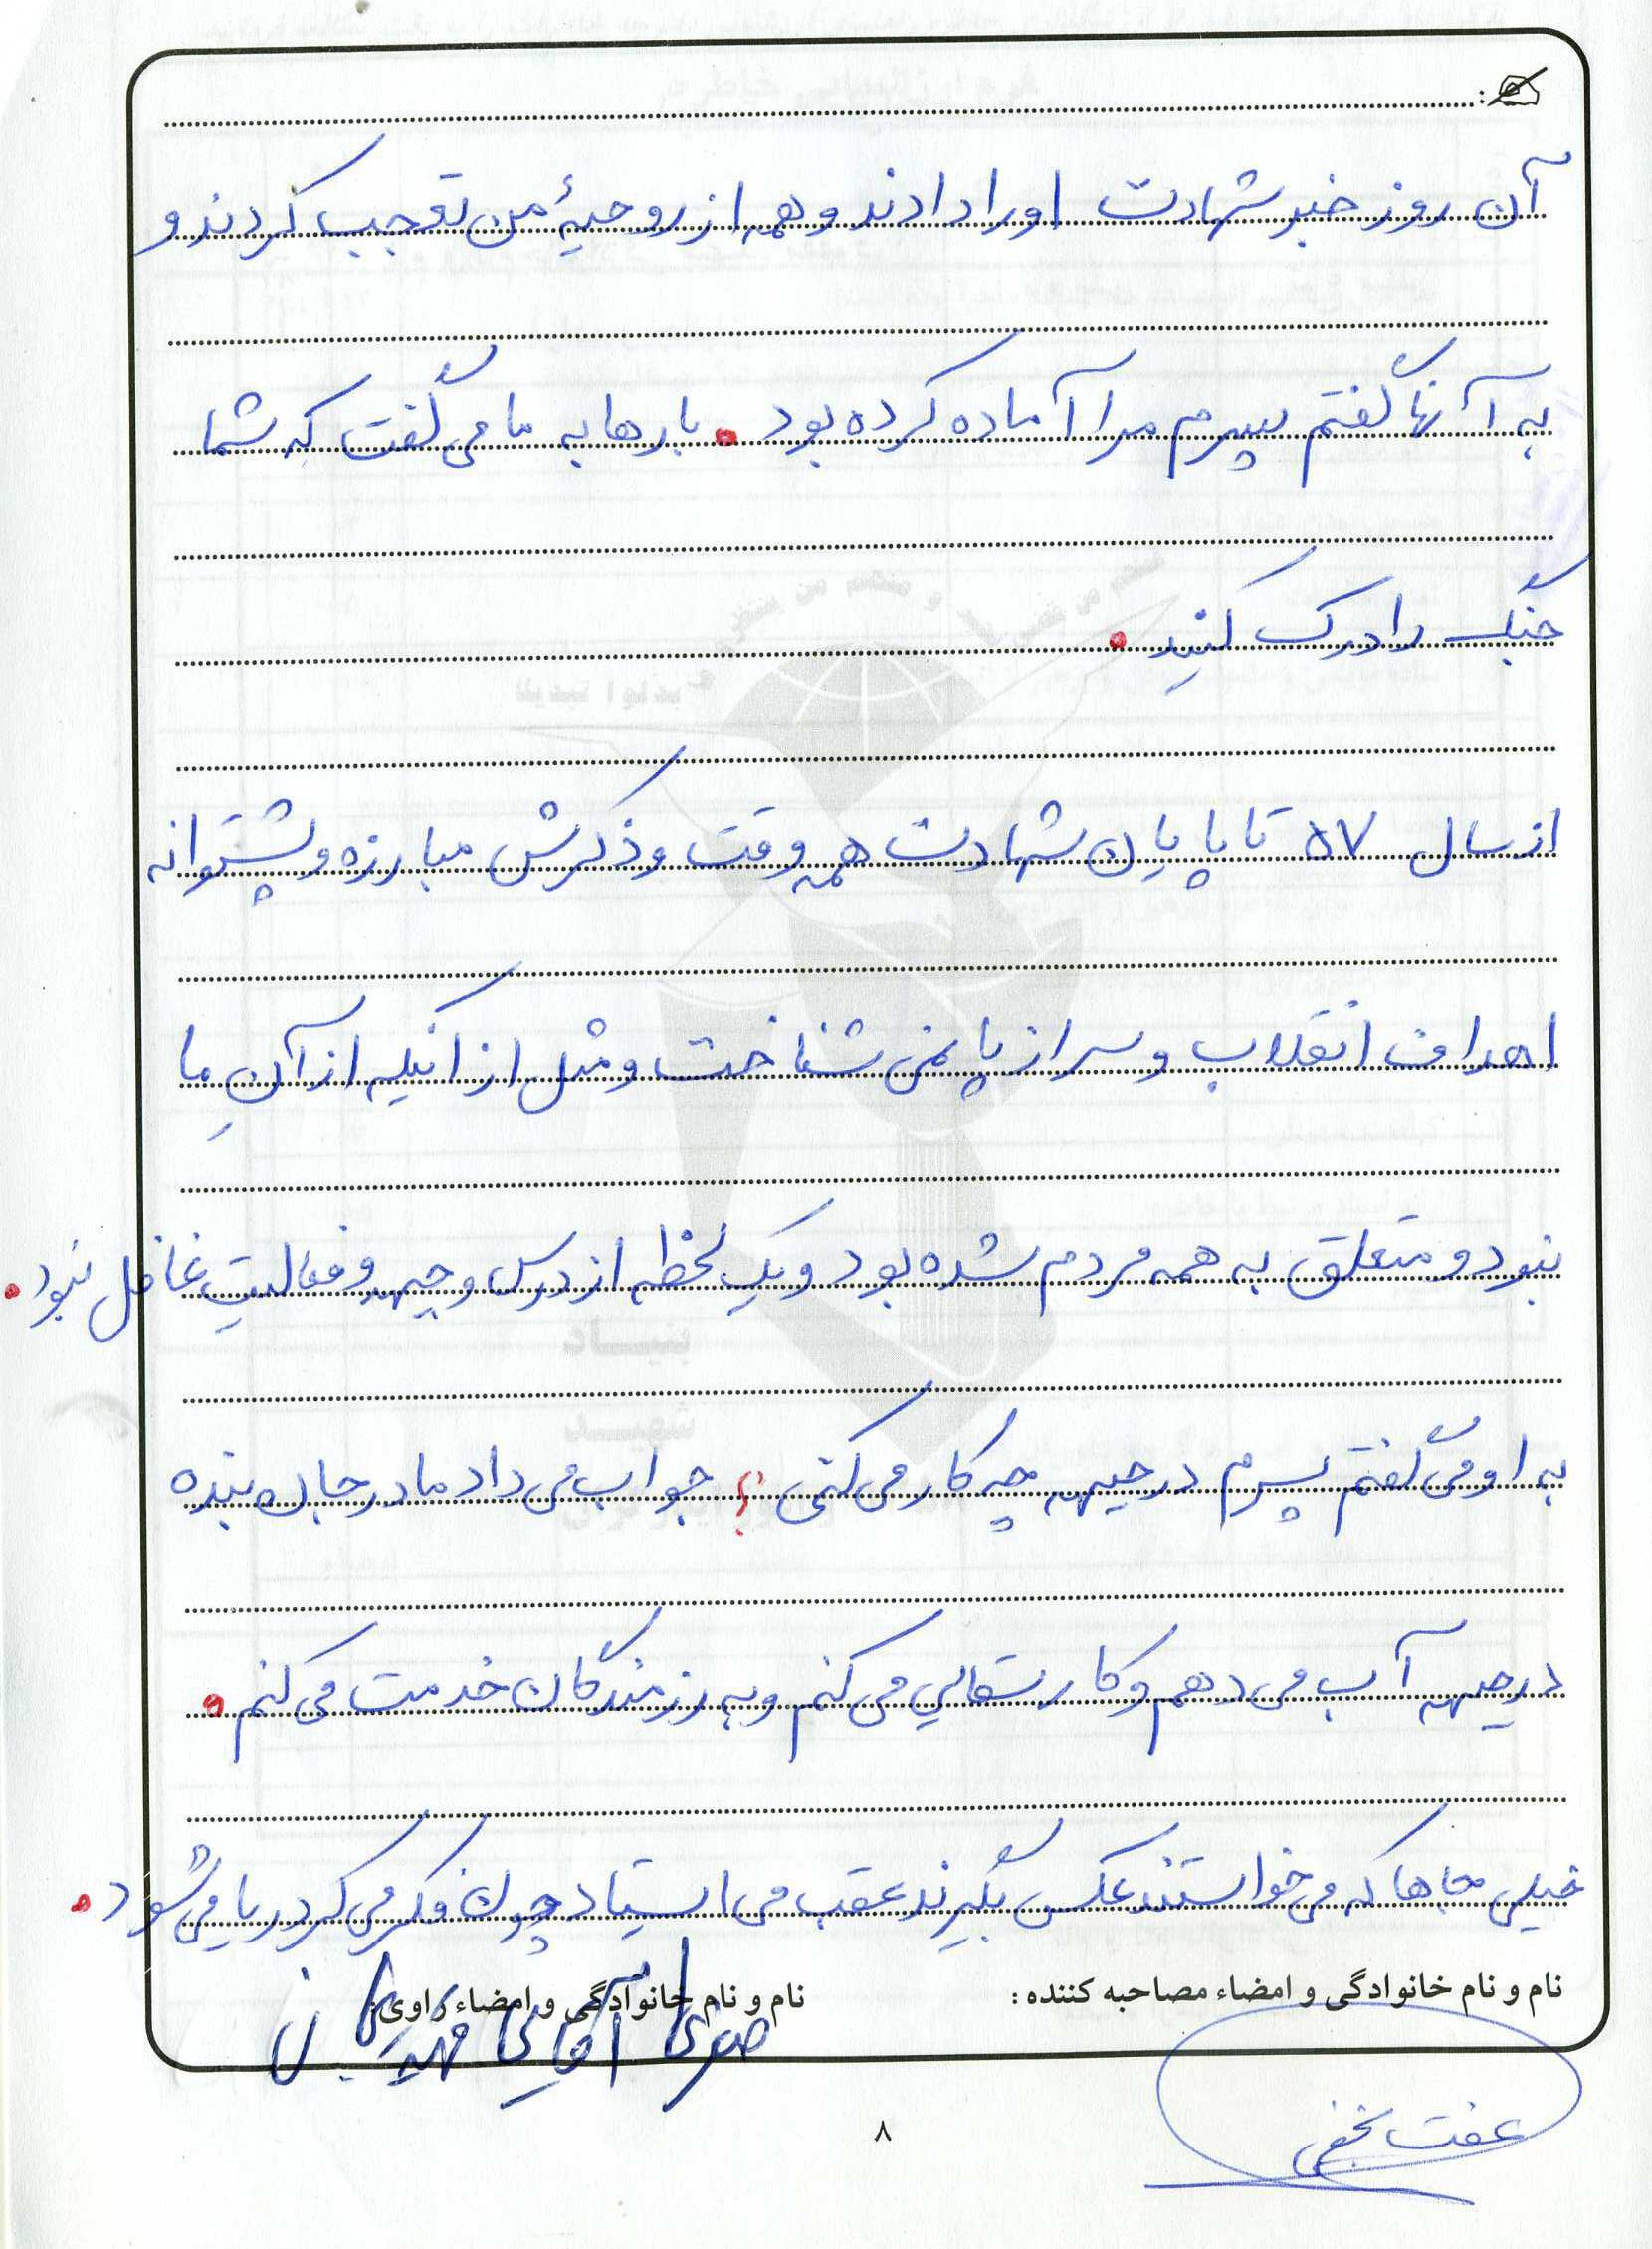 آن روز خبر شهادت او را دادند و همه از روحیهٔ من تعجب کردند و
به آنها گفتم پسرم مرا آماده کرده بود . بارها به ما می گفت که شما
جنگ را درک کنید .
از سال ۵۷ تا پایان شهادت همه وقت و ذکرش مبارزه و پشتوانه
اهداف انقلاب و سر از پا نمی شناخت و مثل از اینکه از آنِ ما
نبود و متعلق به همه مردم شده بود و یک لحظه از درس و جبهه و فعالیت غافل نبود .
به او می گفتم پسرم در جبهه چه کار می کنی ؟ جواب می داد مادر جان بنده
در جبهه آب می دهم و کار سقایی می کنم و به رزمندگان خدمت می کنم .
خیلی جاها که می خواستند عکس بگیرند عقب می استیاد چون فکر می کرد ریا می شود .
نام و نام خانوادگی و امضاء مصاحبه کننده :
نام و نام خانوادگی و امضاء راوی :
صغری آقایی
عفت نجفی
۸